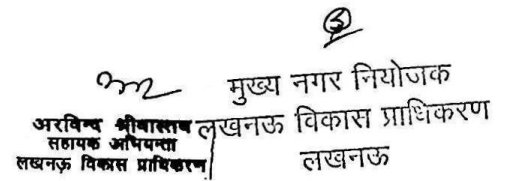 3
मुख्य नगर नियोजक
लखनऊ विकास प्राधिकरण
लखनऊ
अरविन्द श्रीवास्तव
सहायक अभियन्ता
लखनऊ विकास प्राधिकरण